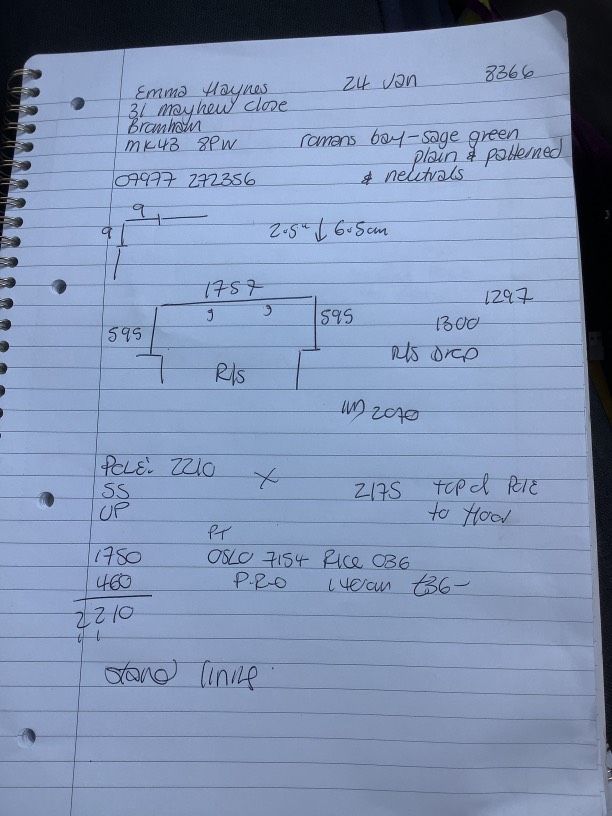 Emma Haynes 24 Jan 8366
31 mayhew close
Bromham
MK43 8PW romans bay - sage green
plain & patterned
07977 272356 & neutrals
9
9 2.5" ↓ 6.5cm
1757 1297
595 9 9 595 1300
R/S R/S Drop
2070
POLE: 2210 X 2175 top of Pole
SS to Floor
UP
PT
1750 OSLO 7154 Rice 036
460 P.R.O 140cm £36-
2210
1 1
stand lining